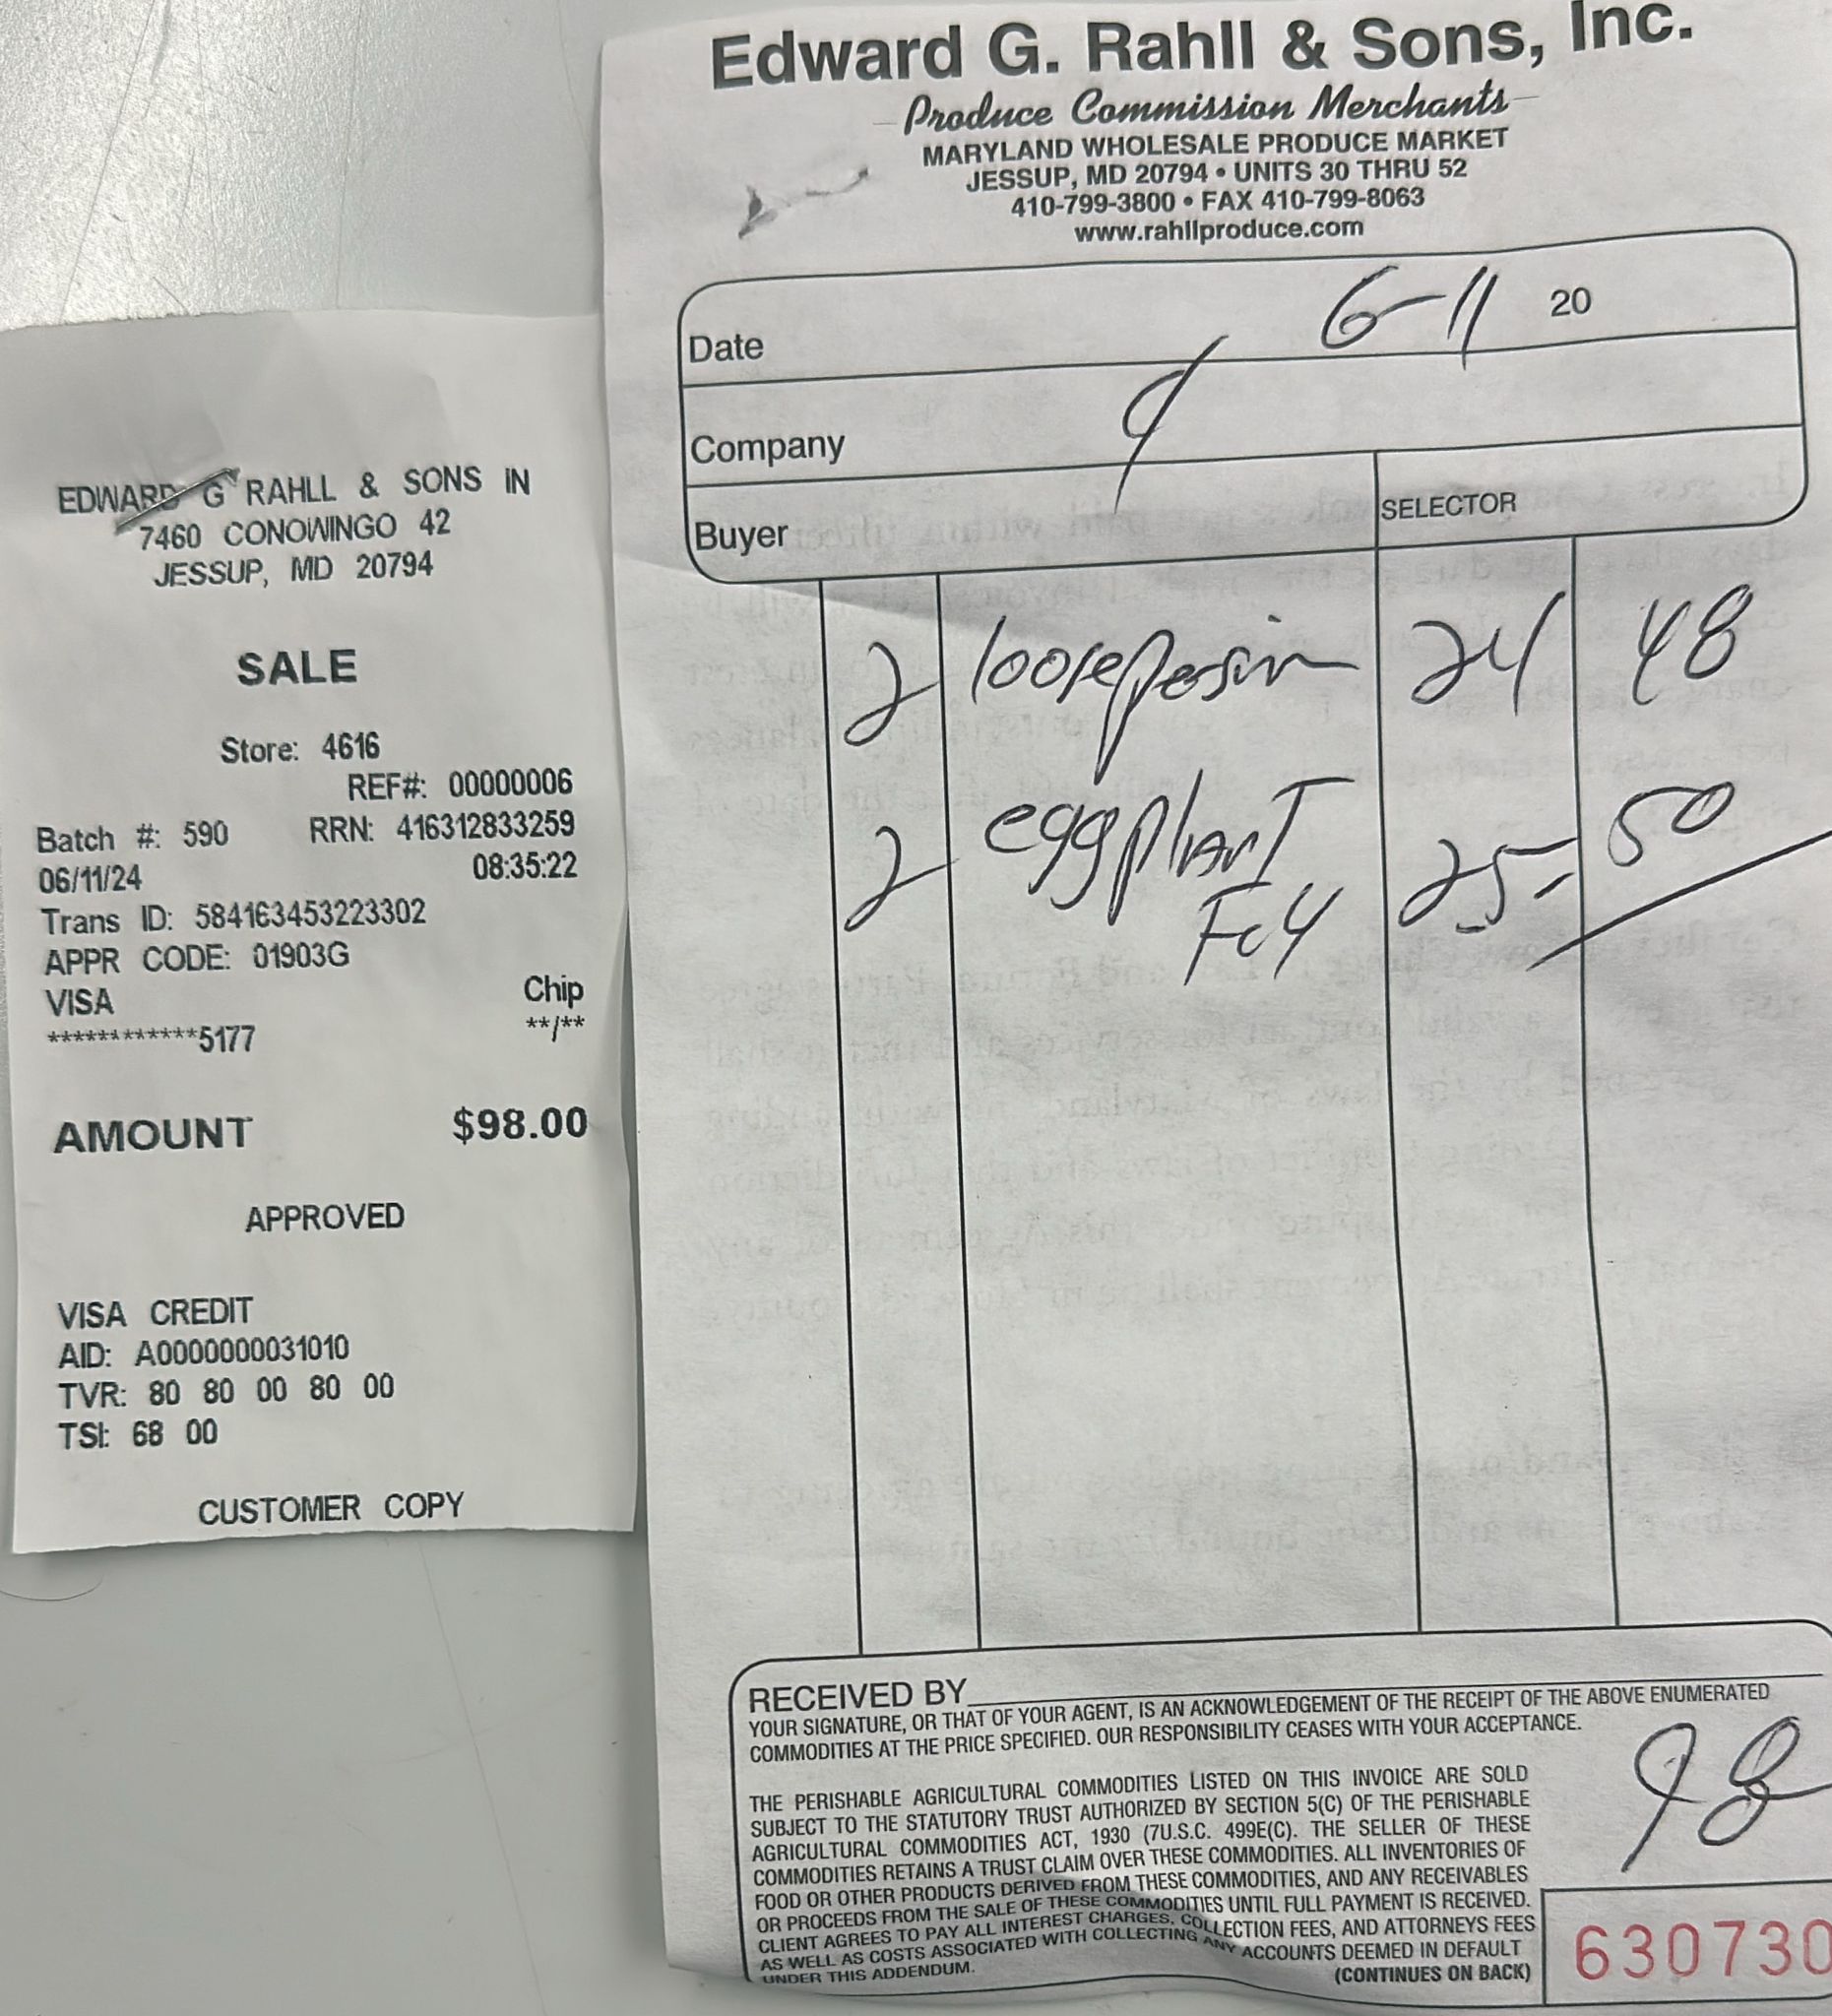 EDWARD G RAHLL & SONS IN
7460 CONOWINGO 42
JESSUP, MD 20794
SALE
Store: 4616
REF#: 00000006
Batch #: 590 RRN: 416312833259
06/11/24 08:35:22
Trans ID: 584163453223302
APPR CODE: 01903G
VISA Chip
************5177 **/**
AMOUNT $98.00
APPROVED
VISA CREDIT
AID: A0000000031010
TVR: 80 80 00 80 00
TSI: 68 00
CUSTOMER COPY
Edward G. Rahll & Sons, Inc.
Produce Commission Merchants
MARYLAND WHOLESALE PRODUCE MARKET
JESSUP, MD 20794 • UNITS 30 THRU 52
410-799-3800 • FAX 410-799-8063
www.rahllproduce.com
Date 6-11 20
Company
Buyer SELECTOR
2 loose 24 48
2 eggplant 25 50
Fcy
RECEIVED BY
YOUR SIGNATURE, OR THAT OF YOUR AGENT, IS AN ACKNOWLEDGEMENT OF THE RECEIPT OF THE ABOVE ENUMERATED
COMMODITIES AT THE PRICE SPECIFIED. OUR RESPONSIBILITY CEASES WITH YOUR ACCEPTANCE.
98
THE PERISHABLE AGRICULTURAL COMMODITIES LISTED ON THIS INVOICE ARE SOLD
SUBJECT TO THE STATUTORY TRUST AUTHORIZED BY SECTION 5(C) OF THE PERISHABLE
AGRICULTURAL COMMODITIES ACT, 1930 (7U.S.C. 499E(C). THE SELLER OF THESE
COMMODITIES RETAINS A TRUST CLAIM OVER THESE COMMODITIES. ALL INVENTORIES OF
FOOD OR OTHER PRODUCTS DERIVED FROM THESE COMMODITIES, AND ANY RECEIVABLES
OR PROCEEDS FROM THE SALE OF THESE COMMODITIES UNTIL FULL PAYMENT IS RECEIVED.
CLIENT AGREES TO PAY ALL INTEREST CHARGES, COLLECTION FEES, AND ATTORNEYS FEES
AS WELL AS COSTS ASSOCIATED WITH COLLECTING ANY ACCOUNTS DEEMED IN DEFAULT
UNDER THIS ADDENDUM. (CONTINUES ON BACK)
630730